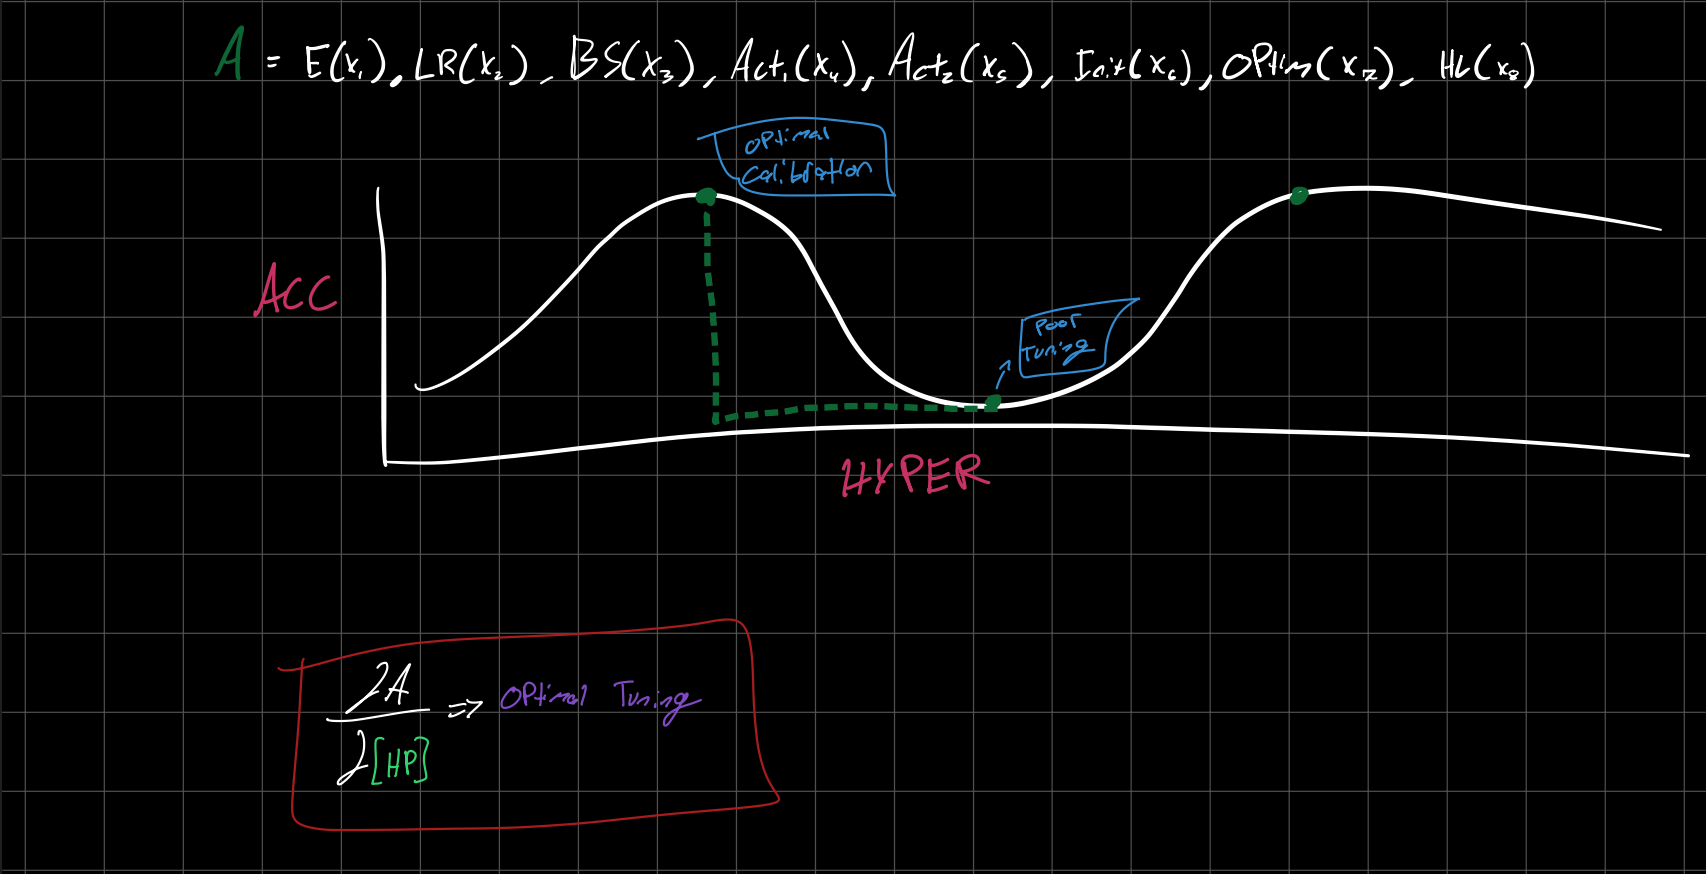 A = E(x₁), LR(x₂), BS(x₃), Act₁(x₄), Act₂(x₅), Init(x₆), OPtim(x₇), HL(x₈)
OPtimal
Calibration
ACC
Poor
Tuning
HYPER
∂A
∂[HP]
=> OPtimal Tuning